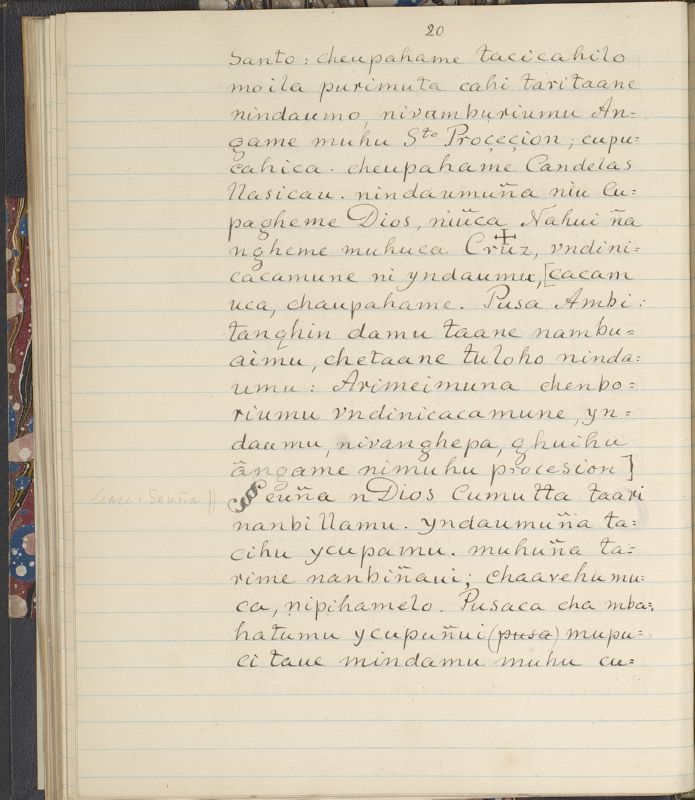 20
Santo: cheupahame tacicahilo
moila purimuta cahi taritaane
nindaumo, nivamburiumu An=
game muhu Sto Proçeçion; cupu=
cahica. cheupahame Candelas
Nasicau. nindaumuña niu Cu=
pagheme Dios, niũca Nahui ña
ngheme muhuca Cruz, vndini=
cacamune ni yndaumu, [cacam
uca, chaupahame. Pusa Ambi:
tanqhin damu taane nambu=
aimu, chetaane tuloho ninda=
umu: Arimeimuna chenbo=
riumu vndinicacamune, yn=
daumu, nivanghepa, ghuihu
ângame nimuhu procesion]
euña n Dios Cumutta taari
nanbillamu. yndaumuña ta=
cihu ycupamu. muhuña ta=
rime nanbiñaui; chaavehumu=
ca, nipihamelo. Pusaca cha mba=
hatumu ycupuñui (pusa) mupu=
ci taue mindamu muhu cu=